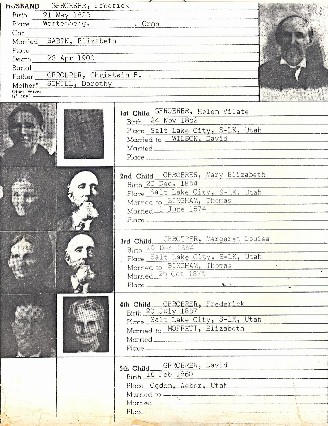 HUSBAND GEROERER, Frederick
Birth 21 May 1825
Place Wurtemberg,
Chr
Married GABIN, Elizibeth
Place
Death 22 Apr 1900
Burial
Father Christain F.
Mother Dorothy
1st Child Helen Vilate
Birth 24 Nov 1852
Place Salt Lake City, S-LK, Utah
Married to WILSON, David
Married
Place
2nd Child GEROERER, Mary Elizabeth
Birth Dec. 1854
Place Salt Lake City, S-LK, Utah
Married to BINGHAM, Thomas
Married June 1874
Place
3rd Child Margaret Louisa
Birth
Place Salt Lake City, S-LK, Utah
Married to BINGHAM, Thomas
Married
Place
4th Child GEROERER, Frederick
Birth 20 July 1857
Place Salt Lake City, S-LK, Utah
Married to MOFFATT, Elizabeth
Married
Place
5th Child GEROERER, David
Birth Feb 1860
Place Ogden, Weber, Utah
Married to
Married
Place